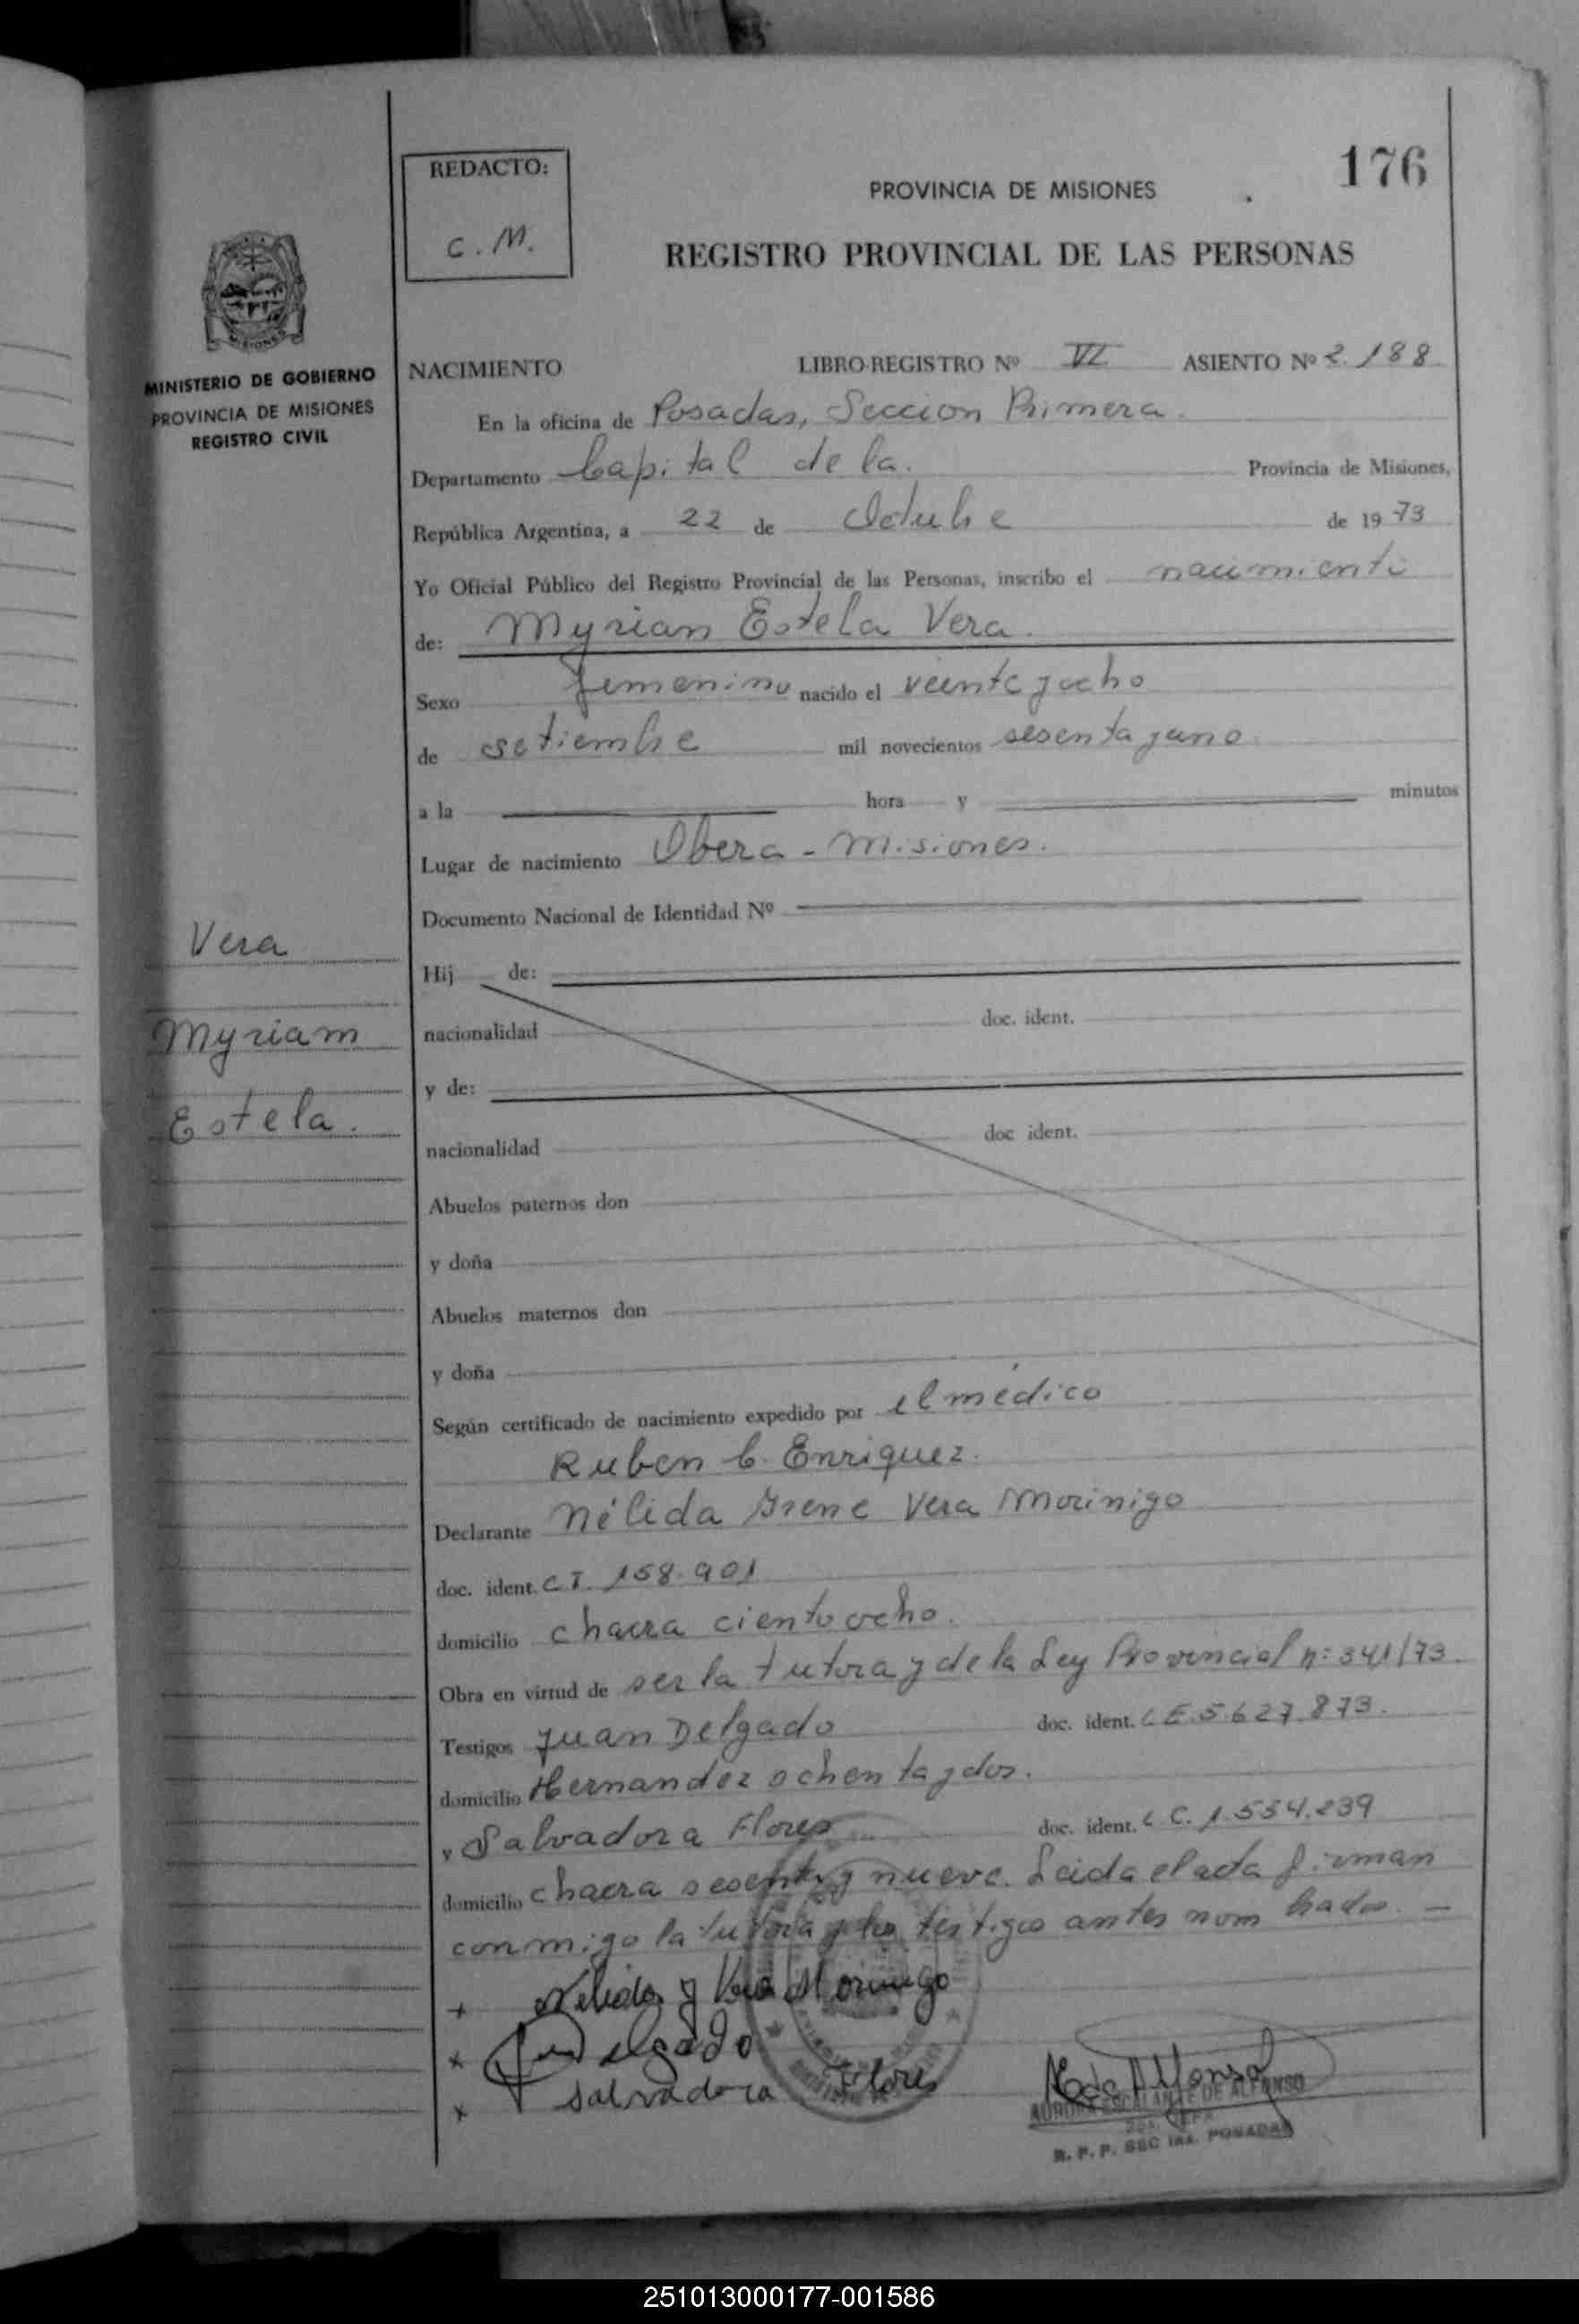 176
REDACTO:
C. M.
PROVINCIA DE MISIONES
REGISTRO PROVINCIAL DE LAS PERSONAS
MISIONES
MINISTERIO DE GOBIERNO
PROVINCIA DE MISIONES
REGISTRO CIVIL
NACIMIENTO LIBRO-REGISTRO Nº VI ASIENTO Nº 2.188
En la oficina de Posadas, Seccion Primera.
Departamento Capital de la. Provincia de Misiones,
República Argentina, a 22 de Octubre de 1973
Yo Oficial Público del Registro Provincial de las Personas, inscribo el nacimiento
de: Myrian Estela Vera.
Sexo femenino nacido el veinte y ocho
de setiembre mil novecientos sesenta y uno.
a la hora y minutos
Lugar de nacimiento Obera - Misiones.
Documento Nacional de Identidad Nº
Vera
Myriam
Estela.
Hij de:
nacionalidad doc. ident.
y de:
nacionalidad doc ident.
Abuelos paternos don
y doña
Abuelos maternos don
y doña
Según certificado de nacimiento expedido por el médico
Ruben C. Enriquez.
Declarante Nélida Irene Vera Morinigo
doc. ident. C.I. 158.901
domicilio chacra ciento ocho.
Obra en virtud de ser la tutora y de la Ley Provincial nº 341/73.
Testigos Juan Delgado doc. ident. L.E. 5.627.873.
domicilio Hernandez ochenta y dos.
y Salvadora Flores doc. ident. L.C. 1.554.239
domicilio chacra sesenta y nueve. Leida el acta firman
conmigo la tutora y los testigos antes nombrados. —
x Nelida y Vera Morinigo
x Delgado
x Salvadora Flores
A. de Alfonso
AURORA ESCALANTE DE ALFONSO
R. P. P. SEC 1RA. POSADAS
251013000177-001586